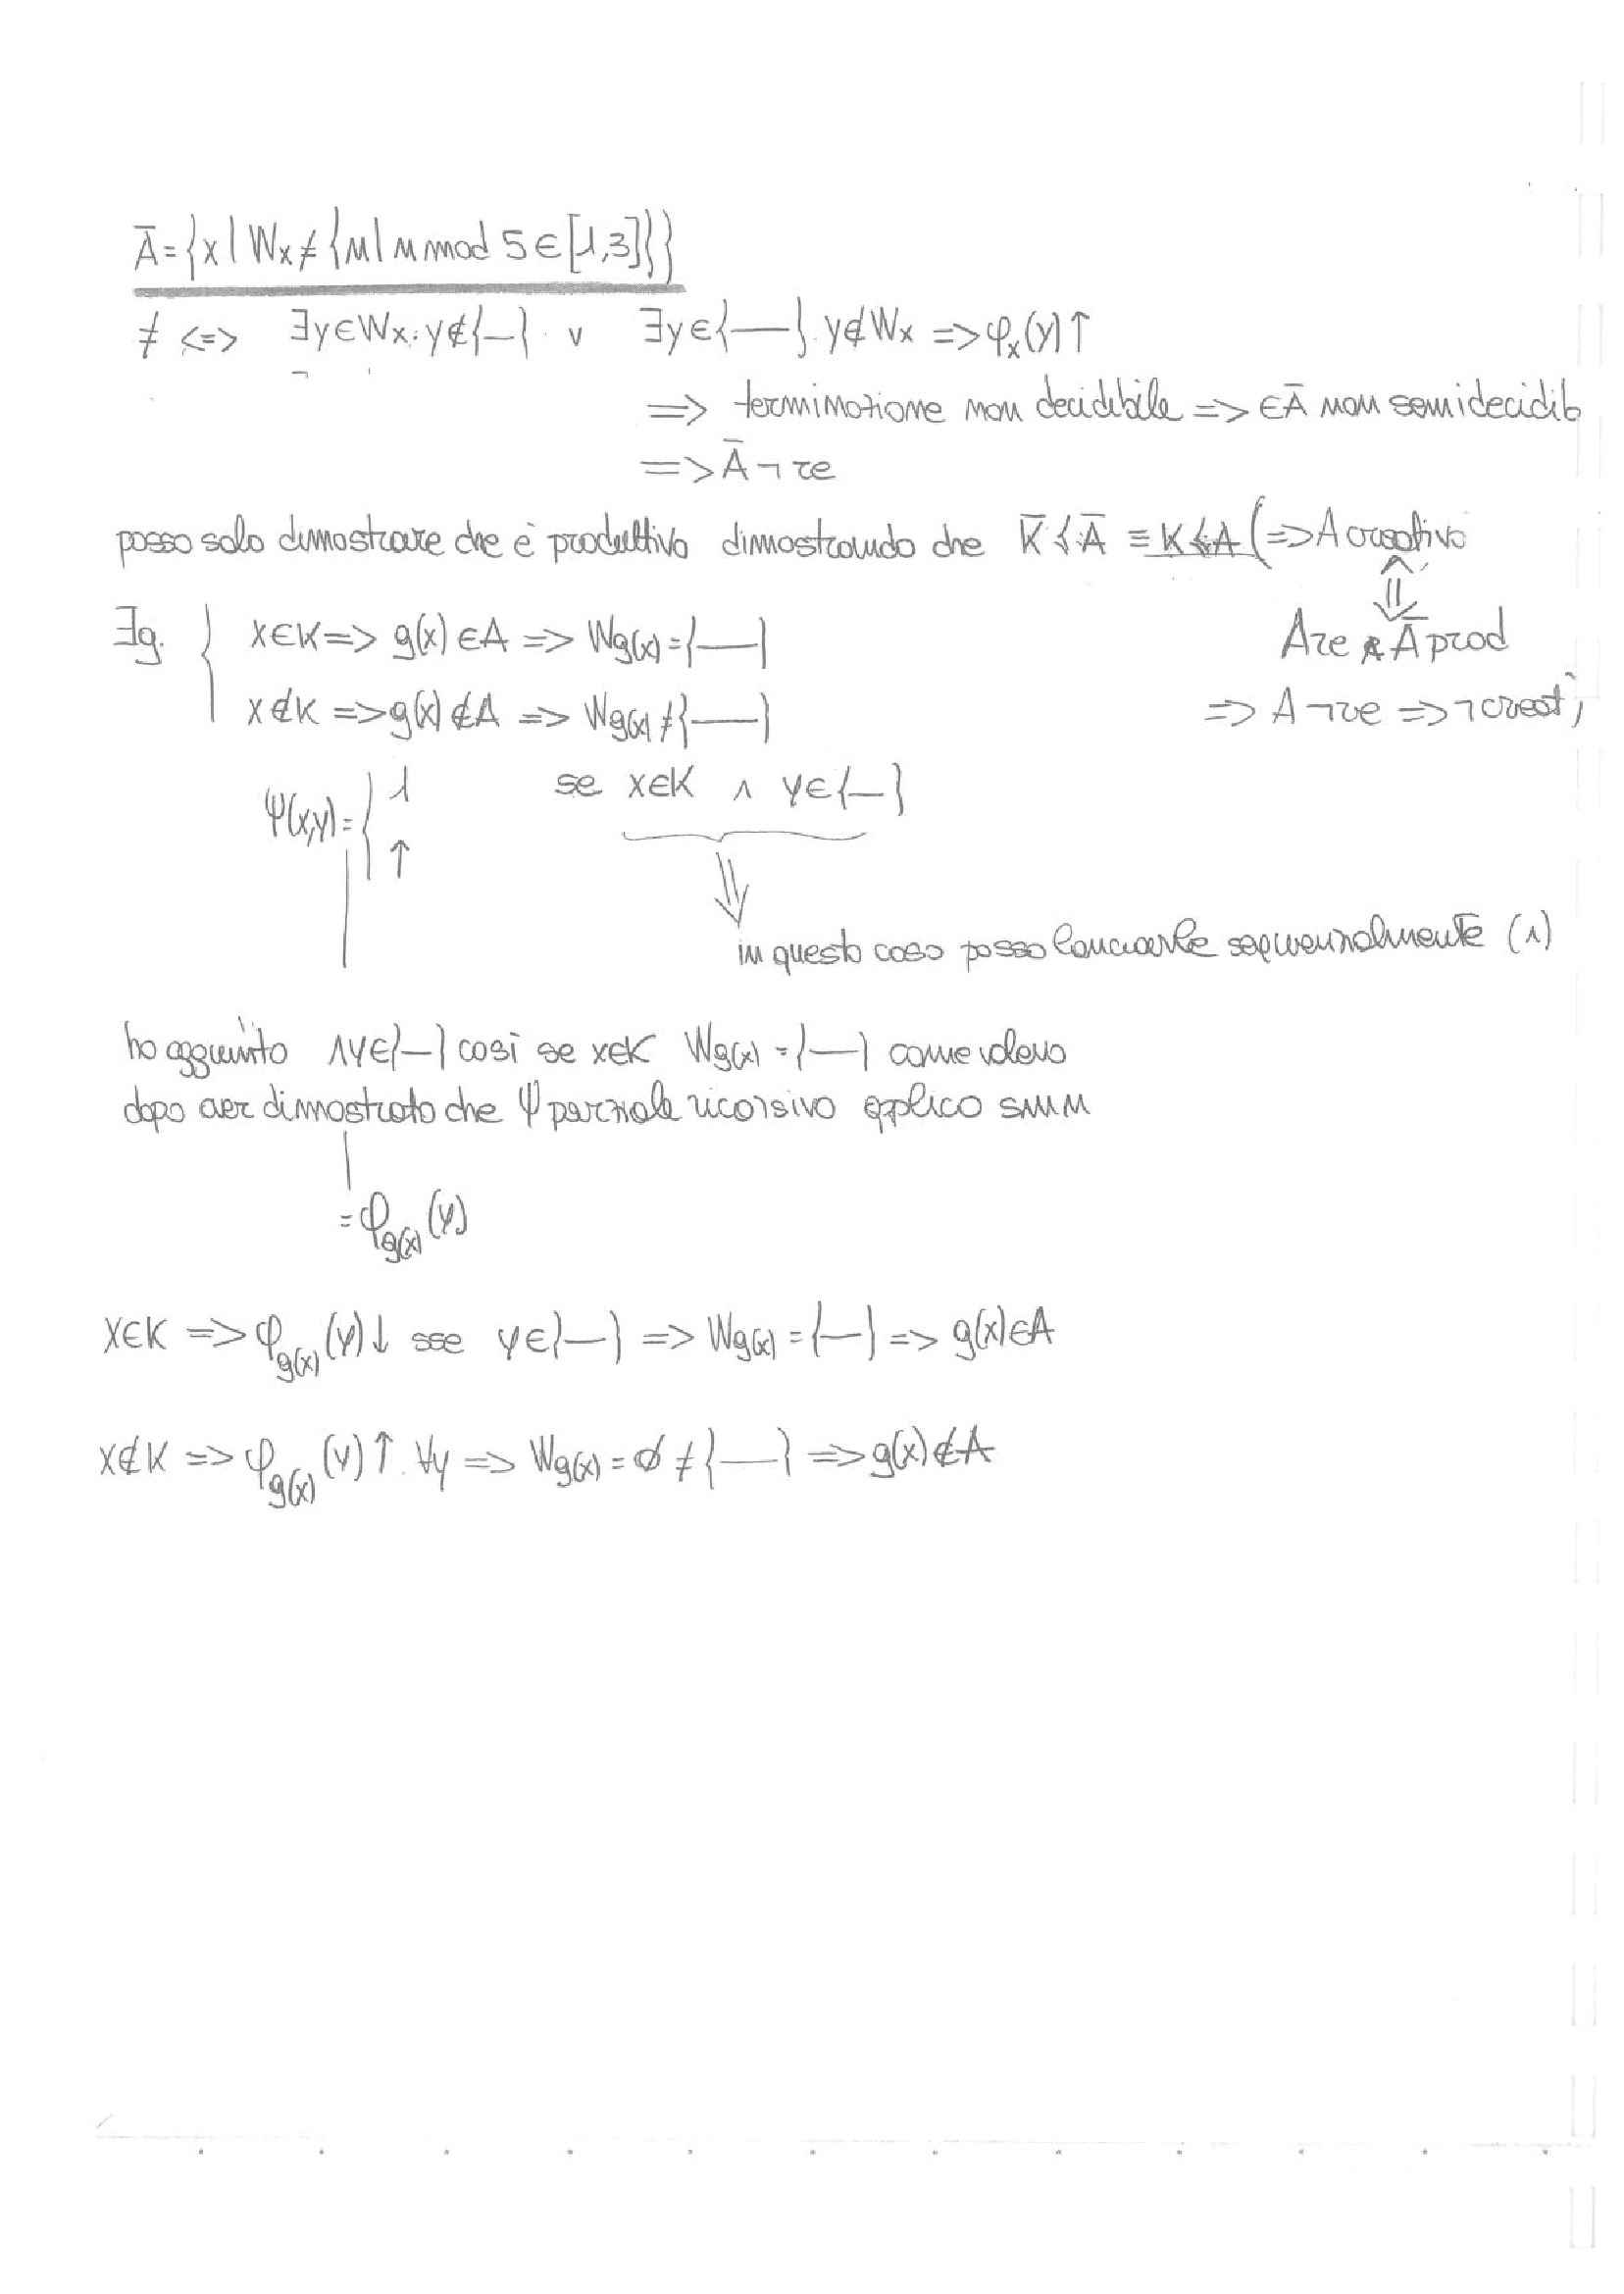 Ā = {x | Wx ≠ {n | n mod 5 ∈ [1,3]}}
≠ <=> ∃y∈Wx. y∉{—} ∨ ∃y∈{—}. y∉Wx => φx(y)↑
=> terminazione non decidibile => ∈Ā non semidecidib
=> Ā ¬ re
posso solo dimostrare che è produttivo dimostrando che K̄ ≤ Ā ≡ K ≤ A (=> A creativo
⇕
∃g. { x∈K => g(x)∈A => Wg(x) = {—}
A re & Ā prod
x∉K => g(x)∉A => Wg(x) ≠ {—}
=> A ¬re => ¬creat
ψ(x,y) = { 1 se x∈K ∧ y∈{—}
↑
⇓
in questo caso posso lanciarle sequenzialmente (∧)
ho aggiunto ∧ y∈{—} così se x∈K Wg(x) = {—} come volevo
dopo aver dimostrato che ψ parziale ricorsivo applico smn
= φg(x)(y)
x∈K => φg(x)(y)↓ sse y∈{—} => Wg(x) = {—} => g(x)∈A
x∉K => φg(x)(y)↑. ∀y => Wg(x) = ∅ ≠ {—} => g(x)∉A